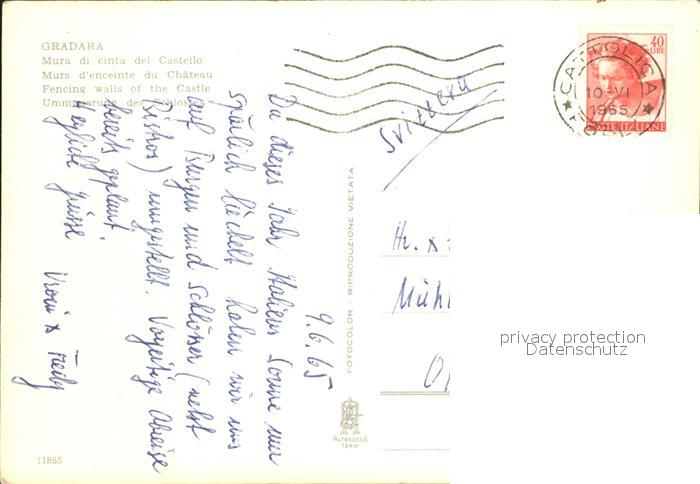 GRADARA
Mura di cinta del Castello
Murs d'enceinte du Château
Fencing walls of the Castle
Ummauerung des Schlosses
40
LIRE
POSTE ITALIANE
CATTOLICA
10-VI
1965
Svizzera
9.6.65
Da dieses Jahr Italiens Sonne nur
spärlich lächelt haben wir uns
auf Burgen und Schlösser (nebst
Bistros) umgestellt. Vorzeitige Abreise
bereits geplant.
Herzliche Grüsse
Vroni &
FOTOCOLOR - RIPRODUZIONE VIETATA
Hr. &
Mühl
O
ALTEROCCA
TERNI
11855
privacy protection
Datenschutz